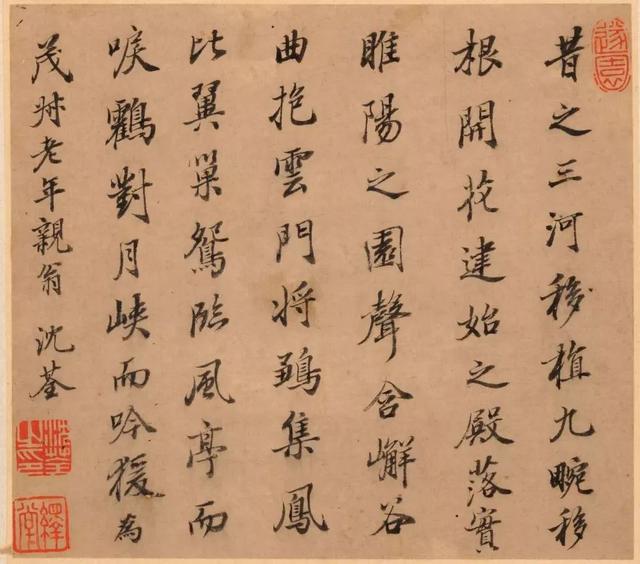 昔之三河移植九畹移
根開花建始之殿落實
睢陽之園聲含嶰谷
曲抱雲門将鶵集鳳
比翼巢鴛臨風亭而
唳鸖對月峽而吟猨為
茂叔老年親翁 沈荃
遂園
沈荃之印
繹堂